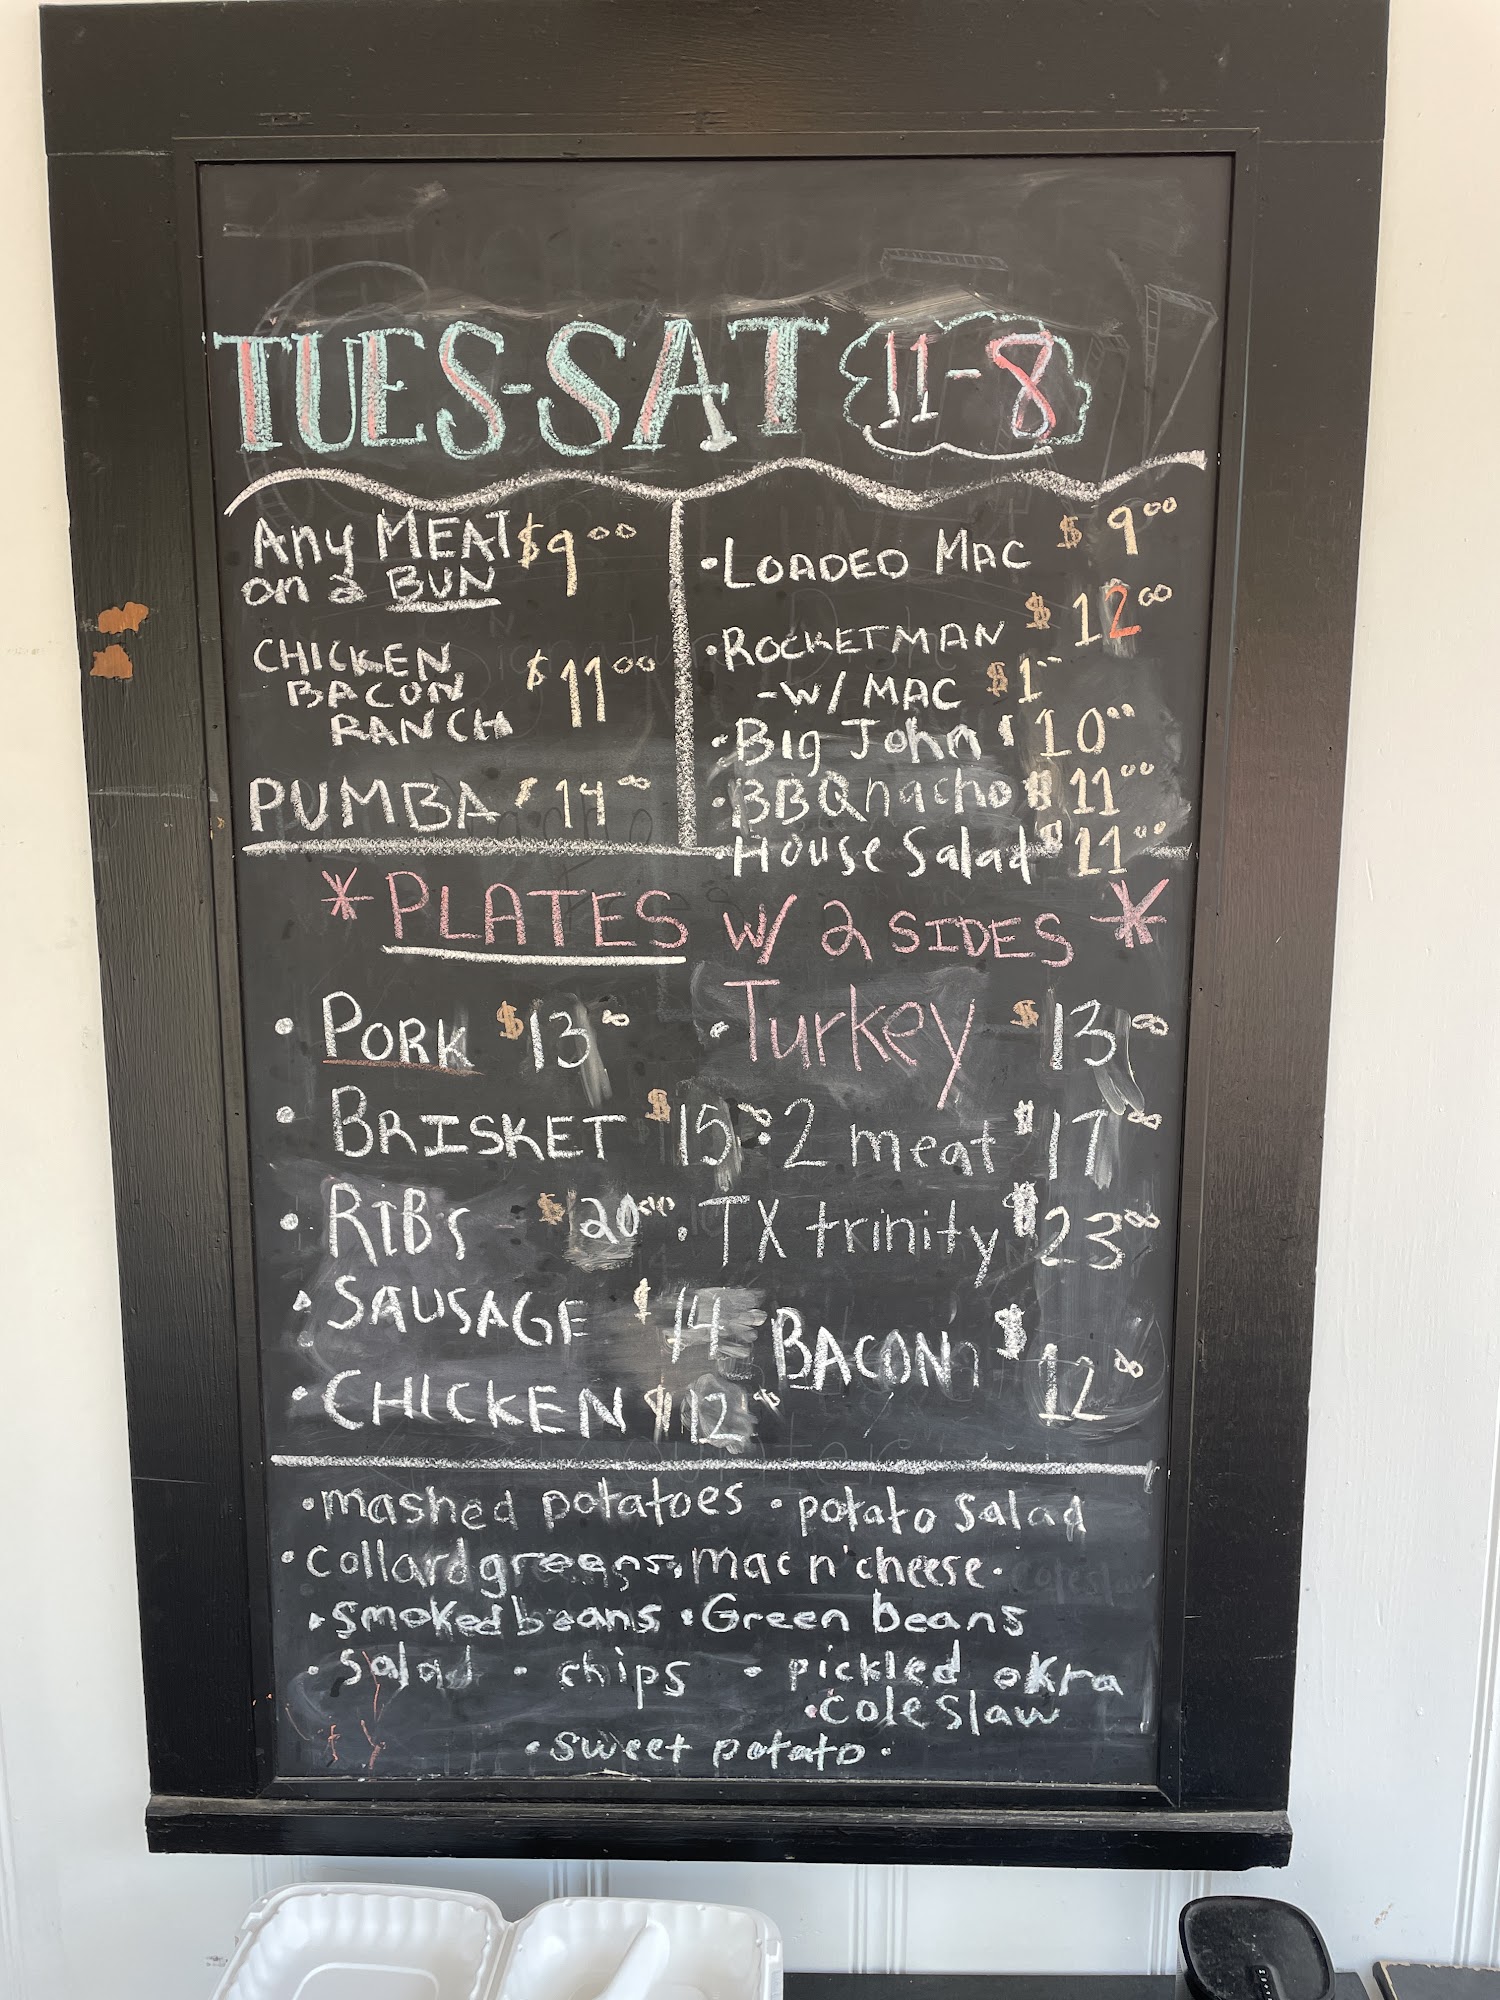 TUES-SAT 11-8
Any MEAT $9.00
on a BUN
CHICKEN
BACON $11.00
RANCH
PUMBA $14.00
• LOADED MAC $9.00
• ROCKETMAN $12.00
-W/ MAC $1
• Big John $10.00
• BBQ nacho $11.00
• House Salad $11.00
* PLATES W/ 2 SIDES *
• PORK $13.00
• Turkey $13.00
• BRISKET $15.00
• 2 meat $17.00
• RIBS $20.00
• TX trinity $23.00
• SAUSAGE $14
BACON $12.00
• CHICKEN $12.00
• mashed potatoes • potato salad
• collard greens • mac n' cheese •
• smoked beans • Green beans
• salad • chips • pickled okra
• coleslaw
• sweet potato •